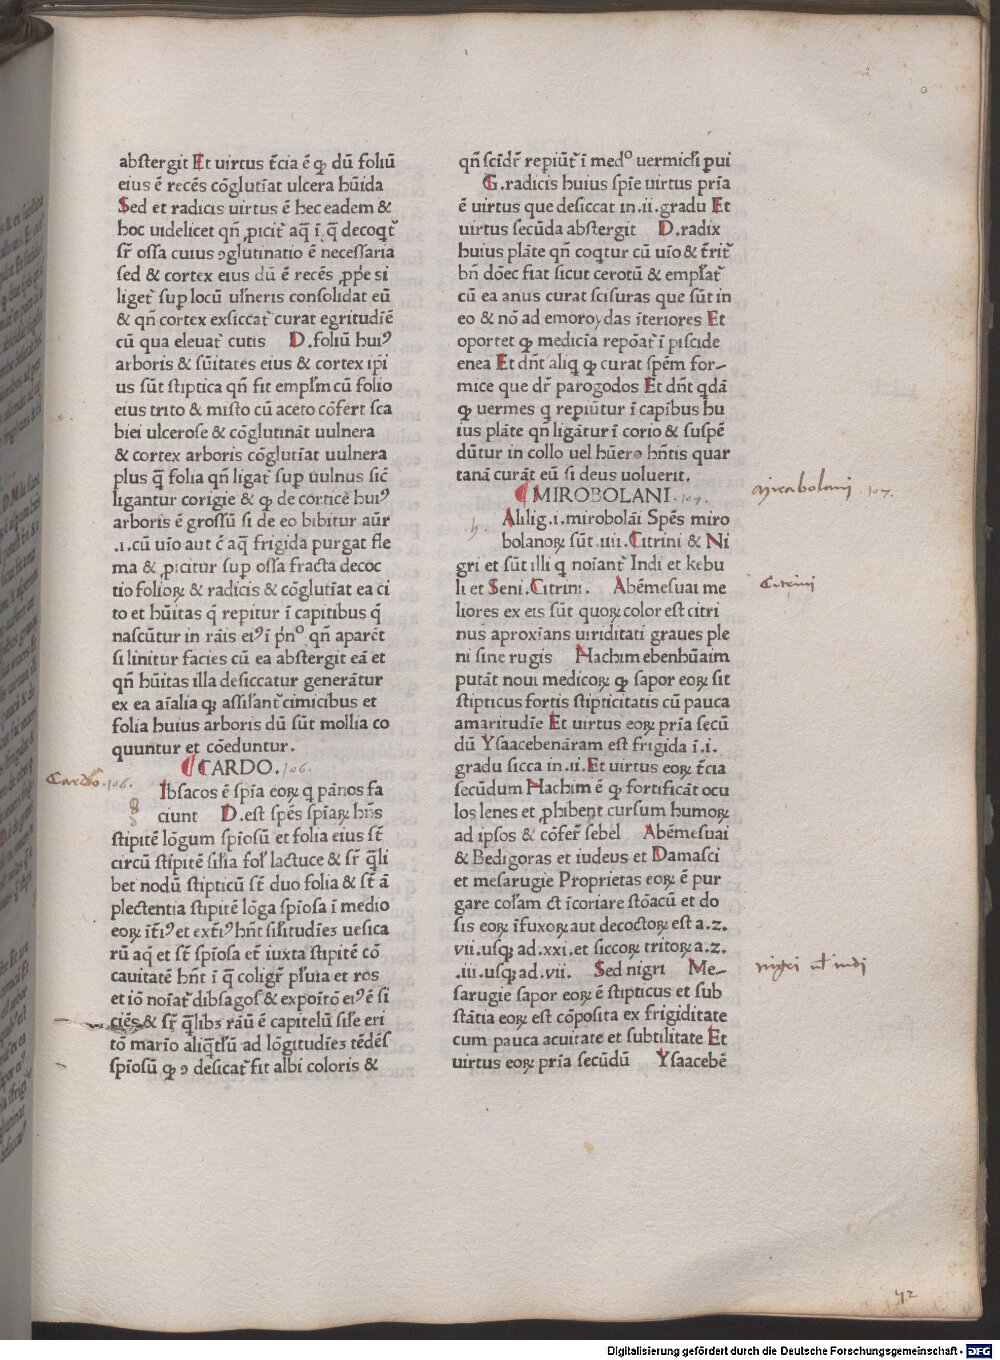 abstergit Et uirtus t̄cia ē ꝙ dū foliū
eius ē recēs cōglutīat ulcera hūida
Sed et radicis uirtus ē hec eadem &
hoc uidelicet qn̄ ꝓicit᷑ aq̄ ī q̄ decoqt᷑
sr̄ ossa cuius ꝯglutinatio ē necessaria
sed & cortex eius dū ē recēs ꝓpͤ si
liget᷑ sup locū ulneris consolidat eū
& qn̄ cortex exsiccat᷑ curat egritudiē
cū qua eleuat᷑ cutis D.foliū huiꝰ
arboris & sūitates eius & cortex ipi
us sūt stiptica qn̄ fit emplm̄ cū folio
eius trito & misto cū aceto cōfert sca
biei ulcerose & cōglutināt uulnera
& cortex arboris cōglutīat uulnera
plus q̄ folia qn̄ ligat᷑ sup uulnus sic̄
ligantur corigie & ꝙ de cortice huiꝰ
arboris ē grossū si de eo bibitur aūr̄
.i.cū uīo aut c̄ aq̄ frigida purgat fle
ma & ꝓicitur sup ossa fracta decoc
tio folioꝝ & radicis & cōglutīat ea ci
to et hūitas q̄ repitur ī capitibus q̄
nascūtur in rāis eiꝰ ī pn̊ qn̄ aparēt
si linitur facies cū ea abstergit eā et
qn̄ hūitas illa desiccatur generātur
ex ea aīalia qꝫ assilant᷑ cimicibus et
folia huius arboris dū sūt mollia co
quuntur et cōeduntur.
CARDO. 106.
Cardo. 106.
Ibsacos ē spīa eoꝝ q pānos fa
ciunt D.est spēs spīaꝝ hn̄s
stipitē lōgum spīosū et folia eius st̄
circū stipitē silia fol᷑ lactuce & sr̄ q̄li
bet nodū stipticū st̄ duo folia & st̄ ā
plectentia stipitē lōga spīosa ī medio
eoꝝ īt̄iꝰ et ext̄iꝰ hn̄t sisitudīeꝫ uesica
rū aq̄ et st̄ spīosa et̄ iuxta stipitē cō
cauitatē hn̄t ī q̄ coligr̄ pluia et ros
et iō noīat᷑ dibsagos & expoītō eiꝰ ē si
ciēs & sr̄ q̄libꝫ rāū ē capitelū sile eri
tō marīo aliq̄tlū ad lōgitudīeꝫ tēdēs
spīosū ꝙ ꝯ desicat᷑ fit albi coloris &
qn̄ scīdr̄ repiūt᷑ ī med̊ uermicli pui
G.radicis huius spīe uirtus prīa
ē uirtus que desiccat in.ii.gradu Et
uirtus secūda abstergit D.radix
huius plāte qn̄ coqtur cū uīo & t̄rit᷑
bn̄ dōec fiat sicut cerotū & emplat᷑
cū ea anus curat scisuras que sūt in
eo & nō ad emoroydas īteriores Et
oportet ꝙ medicīa repōat᷑ ī piscide
enea Et dn̄t aliq ꝙ curat spēm for-
mice que dr̄ parogodos Et dn̄t qdā
ꝙ uermes q repiūtur ī capibus hu
ius plāte qn̄ ligātur ī corio & suspē
dūtur in collo uel hūero hn̄tis quar
tanā curāt eū si deus uoluerit.
MIROBOLANI. 107.
Mirabolani. 107.
h.
Alilig.i.mirobolāi Spēs miro
bolanoꝝ sūt .iiii.Citrini & Ni
gri et sūt illi q noīant᷑ Indi et kebu
li et Seni.Citrini. Abēmesuai me
Citrini
liores ex eis sūt quoꝝ color est citri
nus aproxīans uiriditati graues ple
ni sine rugis Hachim ebenhūaim
putāt noui medicoꝝ ꝙ sapor eoꝝ sit
stipticus fortis stipticitatis cū pauca
amaritudīe Et uirtus eoꝝ prīa secū
dū Ysaacebenāram est frigida ī.i.
gradu sicca in.ii.Et uirtus eoꝝ t̄cia
secūdum Hachim ē ꝙ fortificāt ocu
los lenes et ꝓhibent cursum humoꝝ
ad ipsos & cōfer̄ sebel Abēmesuai
& Bedigoras et iudeus et Damasci
et mesarugie Proprietas eoꝝ ē pur
gare colam ct̄ īcoriare stōacū et do
sis eoꝝ īfuxoꝝ aut decoctoꝝ est a.z.
vii.usqꝫ ad.xxi.et siccoꝝ tritoꝝ a.z.
.iii.usqꝫ ad.vii. Sed nigri Me-
nigri ul indi
sarugie sapor eoꝝ ē stipticus et sub
stātia eoꝝ est cōposita ex frigiditate
cum pauca acuitate et subtilitate Et
uirtus eoꝝ prīa secūdū Ysaacebē
42
Digitalisierung gefördert durch die Deutsche Forschungsgemeinschaft - DFG